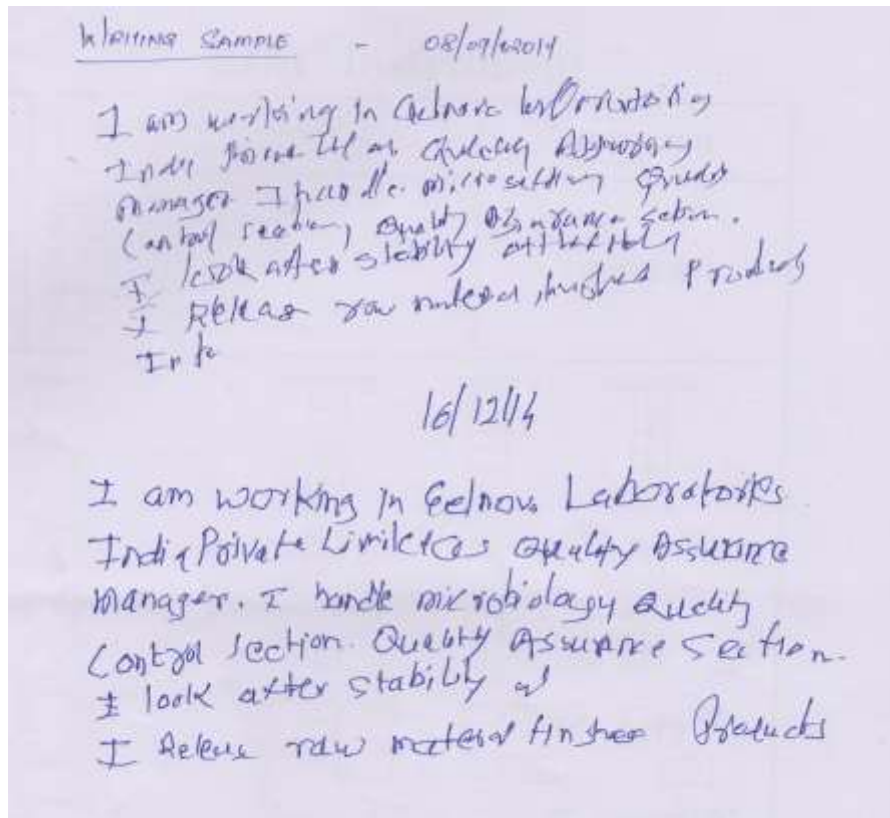 WRITING SAMPLE - 08/09/2014
I am working in Gelnova laboratories
India Private Ltd as Quality Assurance
manager I handle micro section Quality
Control section, Quality Assurance section.
I look after stability
I Release raw material, finished Products
16/12/14
I am working in Gelnova Laboratories
India Private Limited as Quality Assurance
manager. I handle microbiology Quality
Control section. Quality Assurance Section.
I look after stability
I Release raw material finished Products